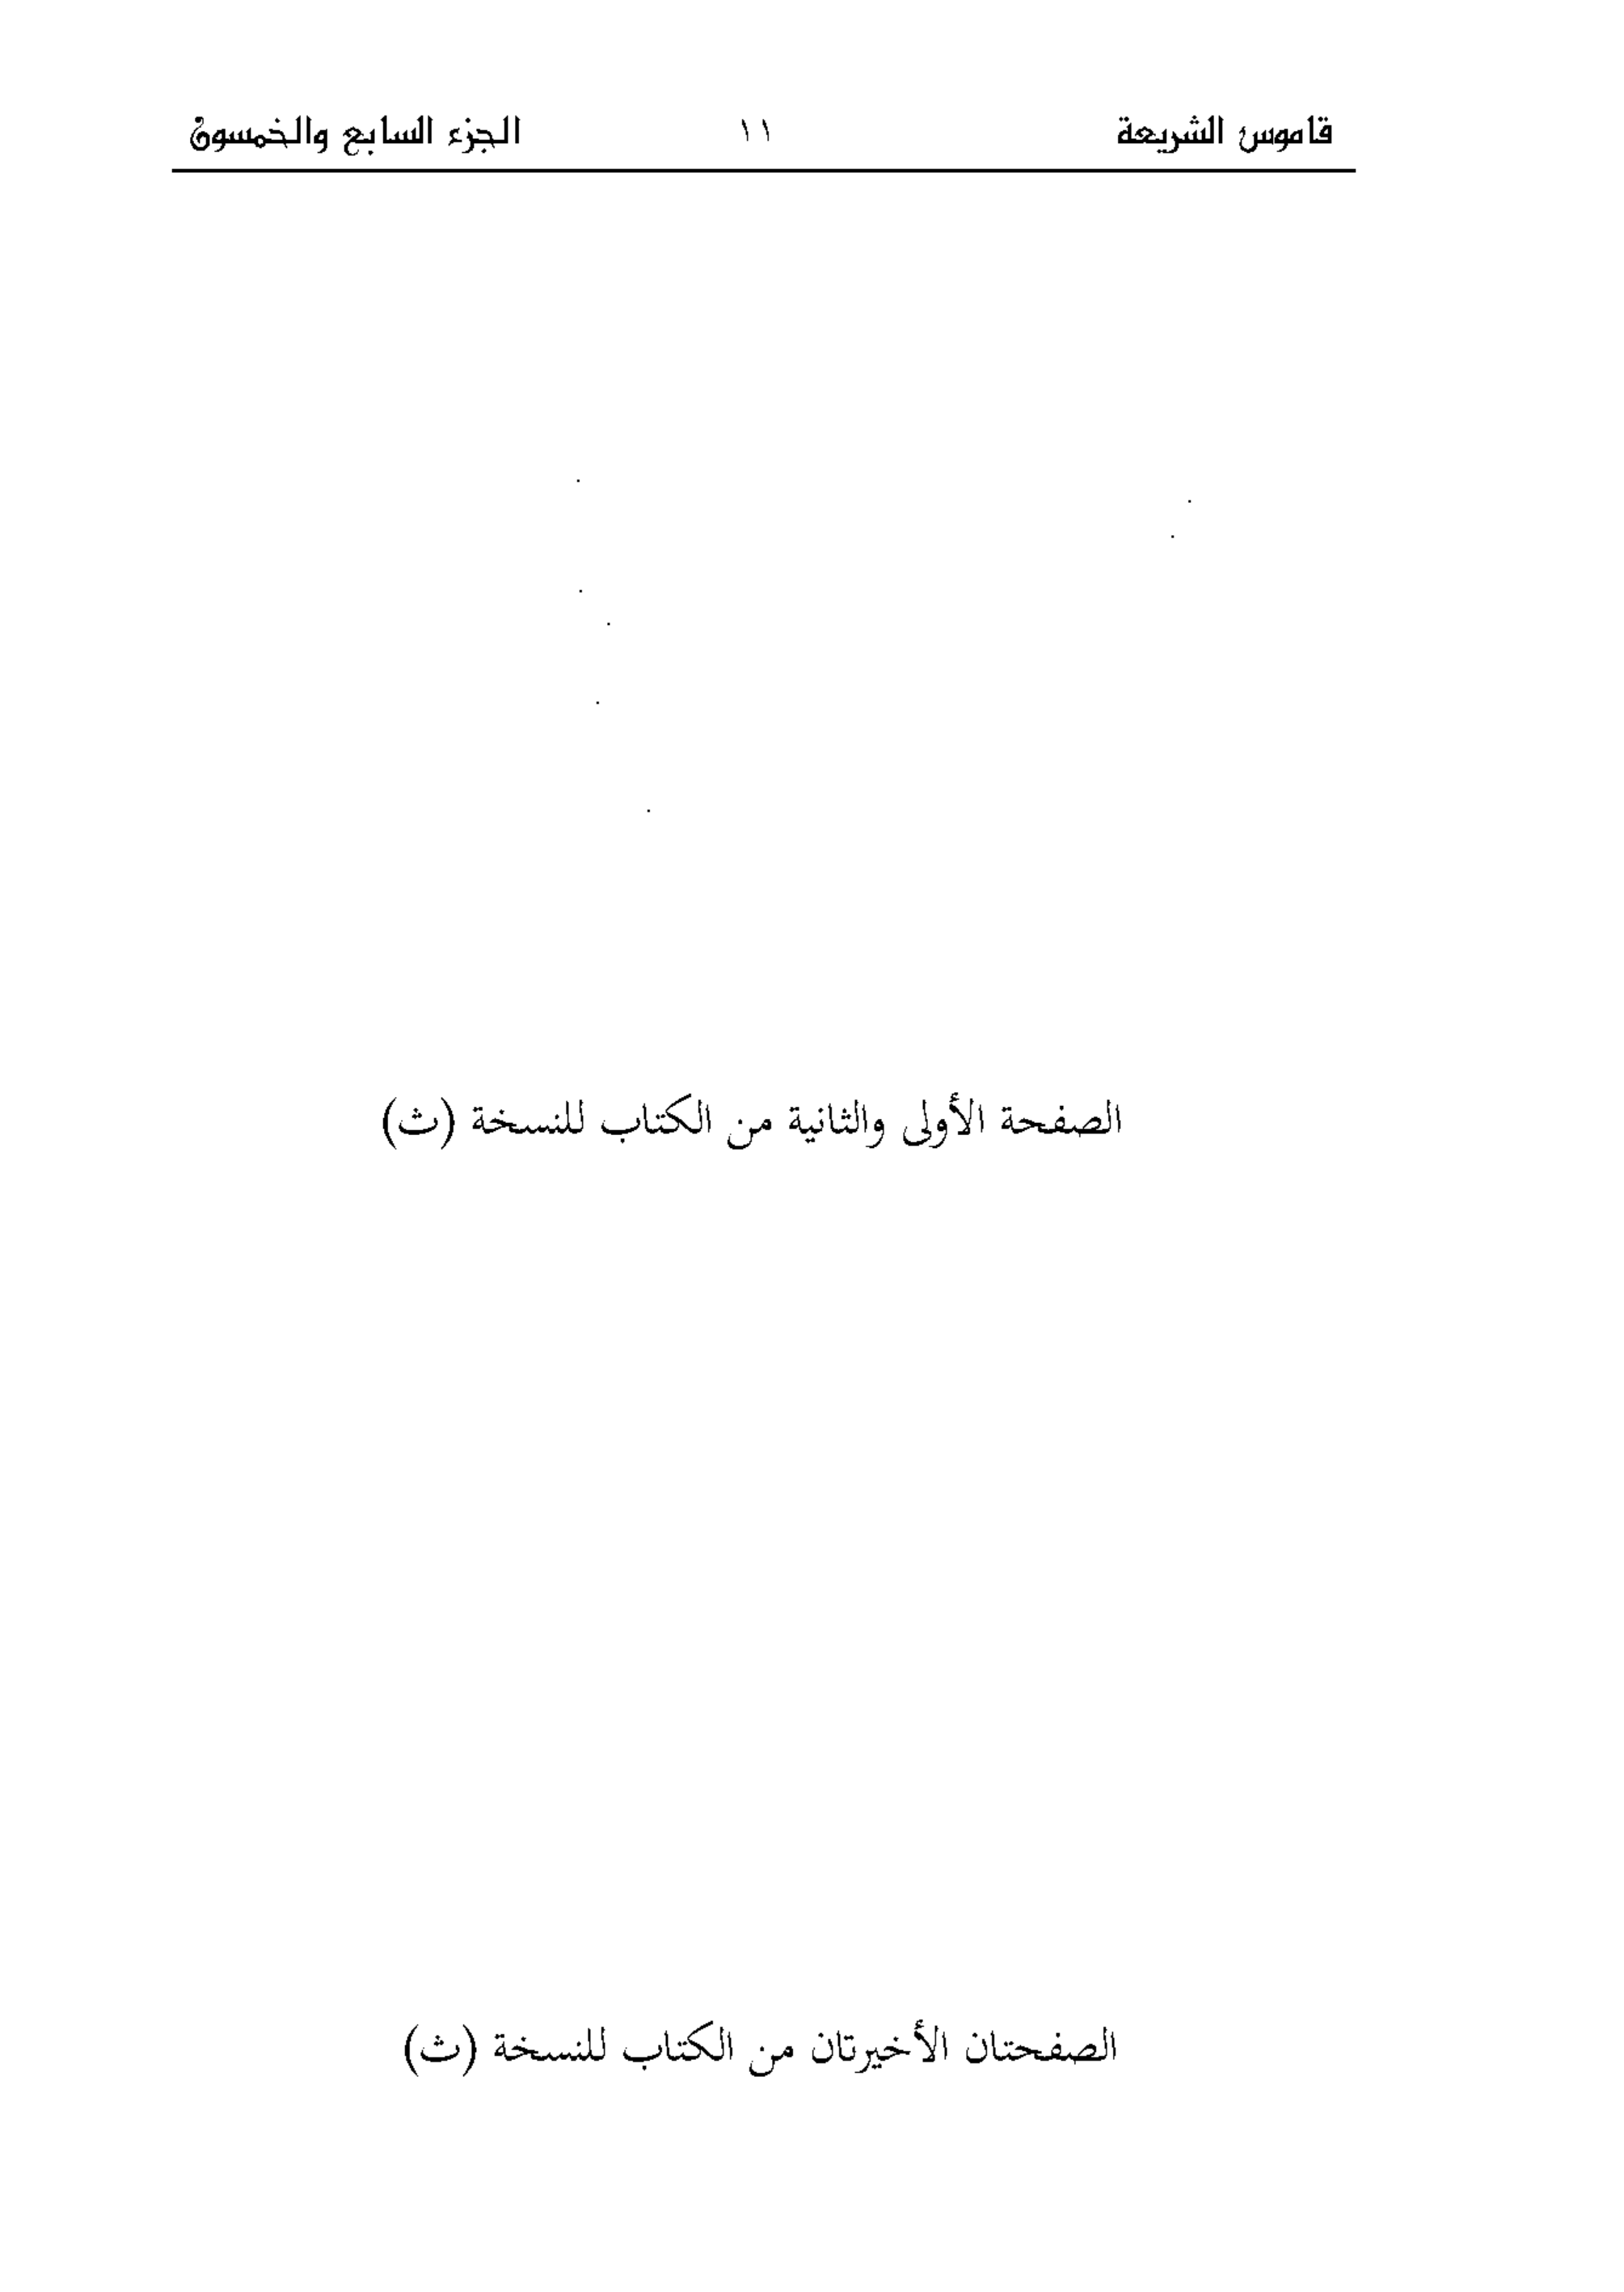 قاموس الشريعة ١١ الجزء السابع والخمسون
الصفحة الأولى والثانية من الكتاب للنسخة (ث)
الصفحتان الأخيرتان من الكتاب للنسخة (ث)